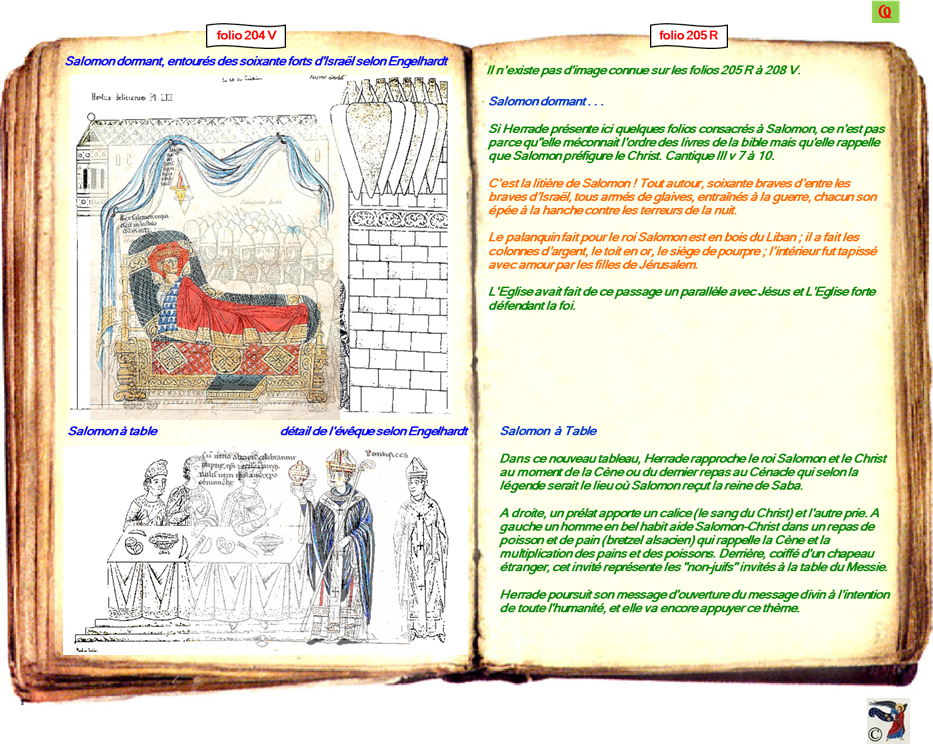 folio 204 V
folio 205 R
Salomon dormant, entourés des soixante forts d'Israël selon Engelhardt
Hortus deliciarum Pl. LIX
Salomon à table
détail de l'évêque selon Engelhardt
Pontifices
Il n'existe pas d'image connue sur les folios 205 R à 208 V.
Salomon dormant . . .
Si Herrade présente ici quelques folios consacrés à Salomon, ce n'est pas
parce qu"elle méconnait l'ordre des livres de la bible mais qu'elle rappelle
que Salomon préfigure le Christ. Cantique III v 7 à 10.
C'est la litière de Salomon ! Tout autour, soixante braves d'entre les
braves d'Israël, tous armés de glaives, entraînés à la guerre, chacun son
épée à la hanche contre les terreurs de la nuit.
Le palanquin fait pour le roi Salomon est en bois du Liban ; il a fait les
colonnes d'argent, le toit en or, le siège de pourpre ; l'intérieur fut tapissé
avec amour par les filles de Jérusalem.
L'Eglise avait fait de ce passage un parallèle avec Jésus et L'Eglise forte
défendant la foi.
Salomon à Table
Dans ce nouveau tableau, Herrade rapproche le roi Salomon et le Christ
au moment de la Cène ou du dernier repas au Cénacle qui selon la
légende serait le lieu où Salomon reçut la reine de Saba.
A droite, un prélat apporte un calice (le sang du Christ) et l'autre prie. A
gauche un homme en bel habit aide Salomon-Christ dans un repas de
poisson et de pain (bretzel alsacien) qui rappelle la Cène et la
multiplication des pains et des poissons. Derrière, coiffé d'un chapeau
étranger, cet invité représente les "non-juifs" invités à la table du Messie.
Herrade poursuit son message d'ouverture du message divin à l'intention
de toute l'humanité, et elle va encore appuyer ce thème.
©